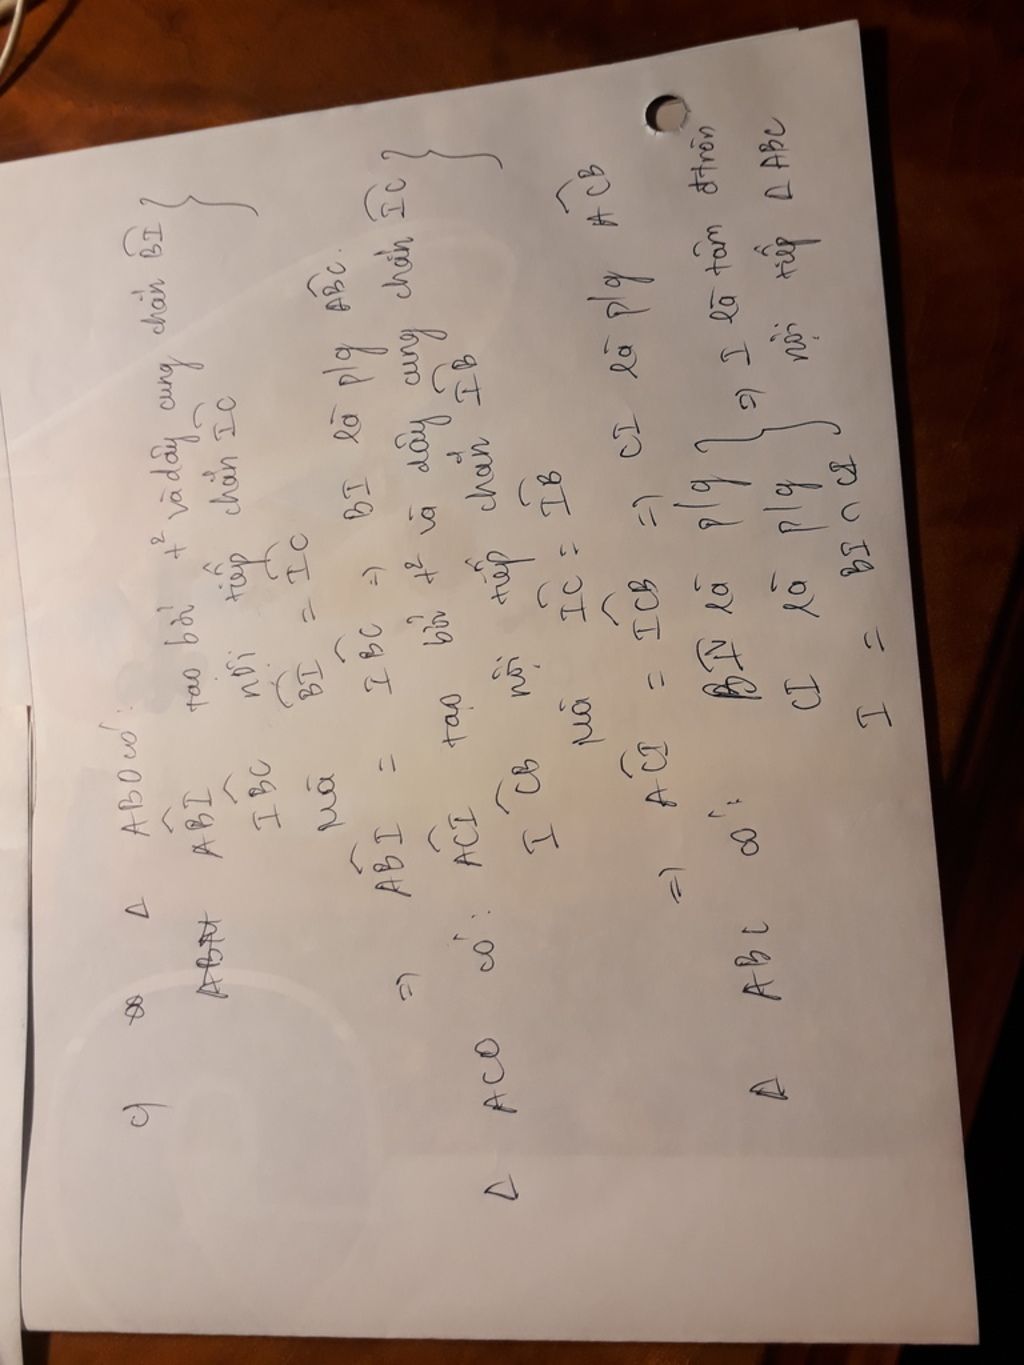 c) Δ ABO có:
ABI tạo bởi t² và dây cung chắn BI }
IBC nội tiếp chắn IC
Mà BI = IC
=> ABI = IBC => BI là p/g ABC.
Δ ACO có: ACI tạo bởi t² và dây cung chắn IC }
ICB nội tiếp chắn IB
Mà IC = IB
=> ACI = ICB => CI là p/g ACB
Δ ABC có: BI là p/g } => I là tâm đtròn
CI là p/g nội tiếp Δ ABC
I = BI ∩ CI